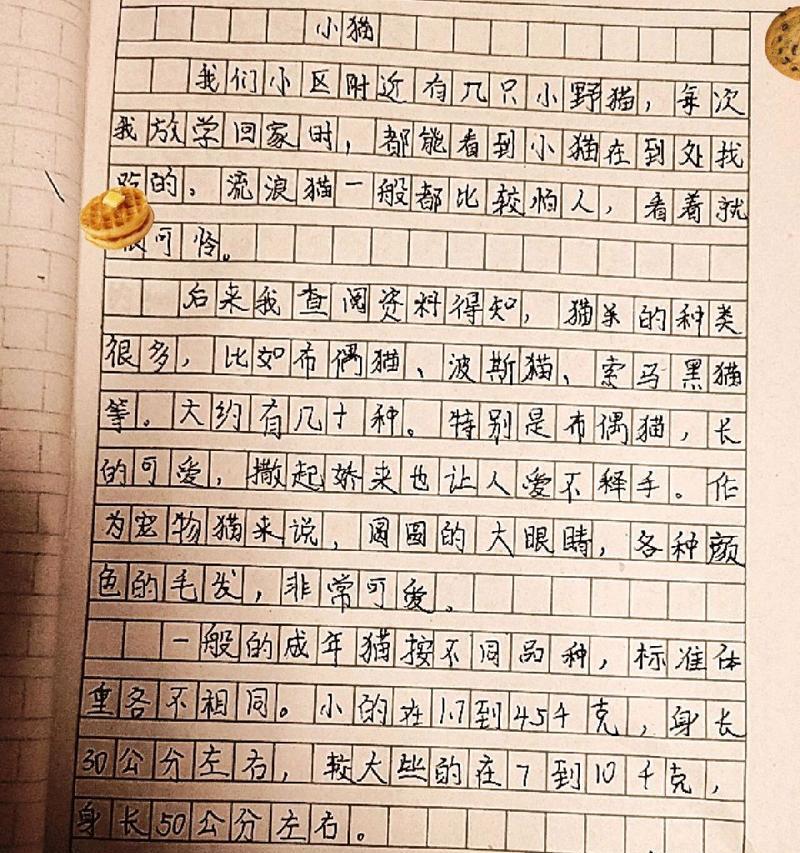 小猫
我们小区附近有几只小野猫，每次
我放学回家时，都能看到小猫在到处找
的。流浪猫一般都比较怕人，看着就
可怜。
后来我查阅资料得知，猫米的种类
很多，比如布偶猫、波斯猫、索马黑猫
等。大约有几十种。特别是布偶猫，长
的可爱，撒起娇来也让人爱不释手。作
为宠物猫来说，圆圆的大眼睛，各种颜
色的毛发，非常可爱。
一般的成年猫按不同品种，标准体
重各不相同。小的在1.7到4.5千克，身长
30公分左右，较大些的在7到10千克，
身长50公分左右。